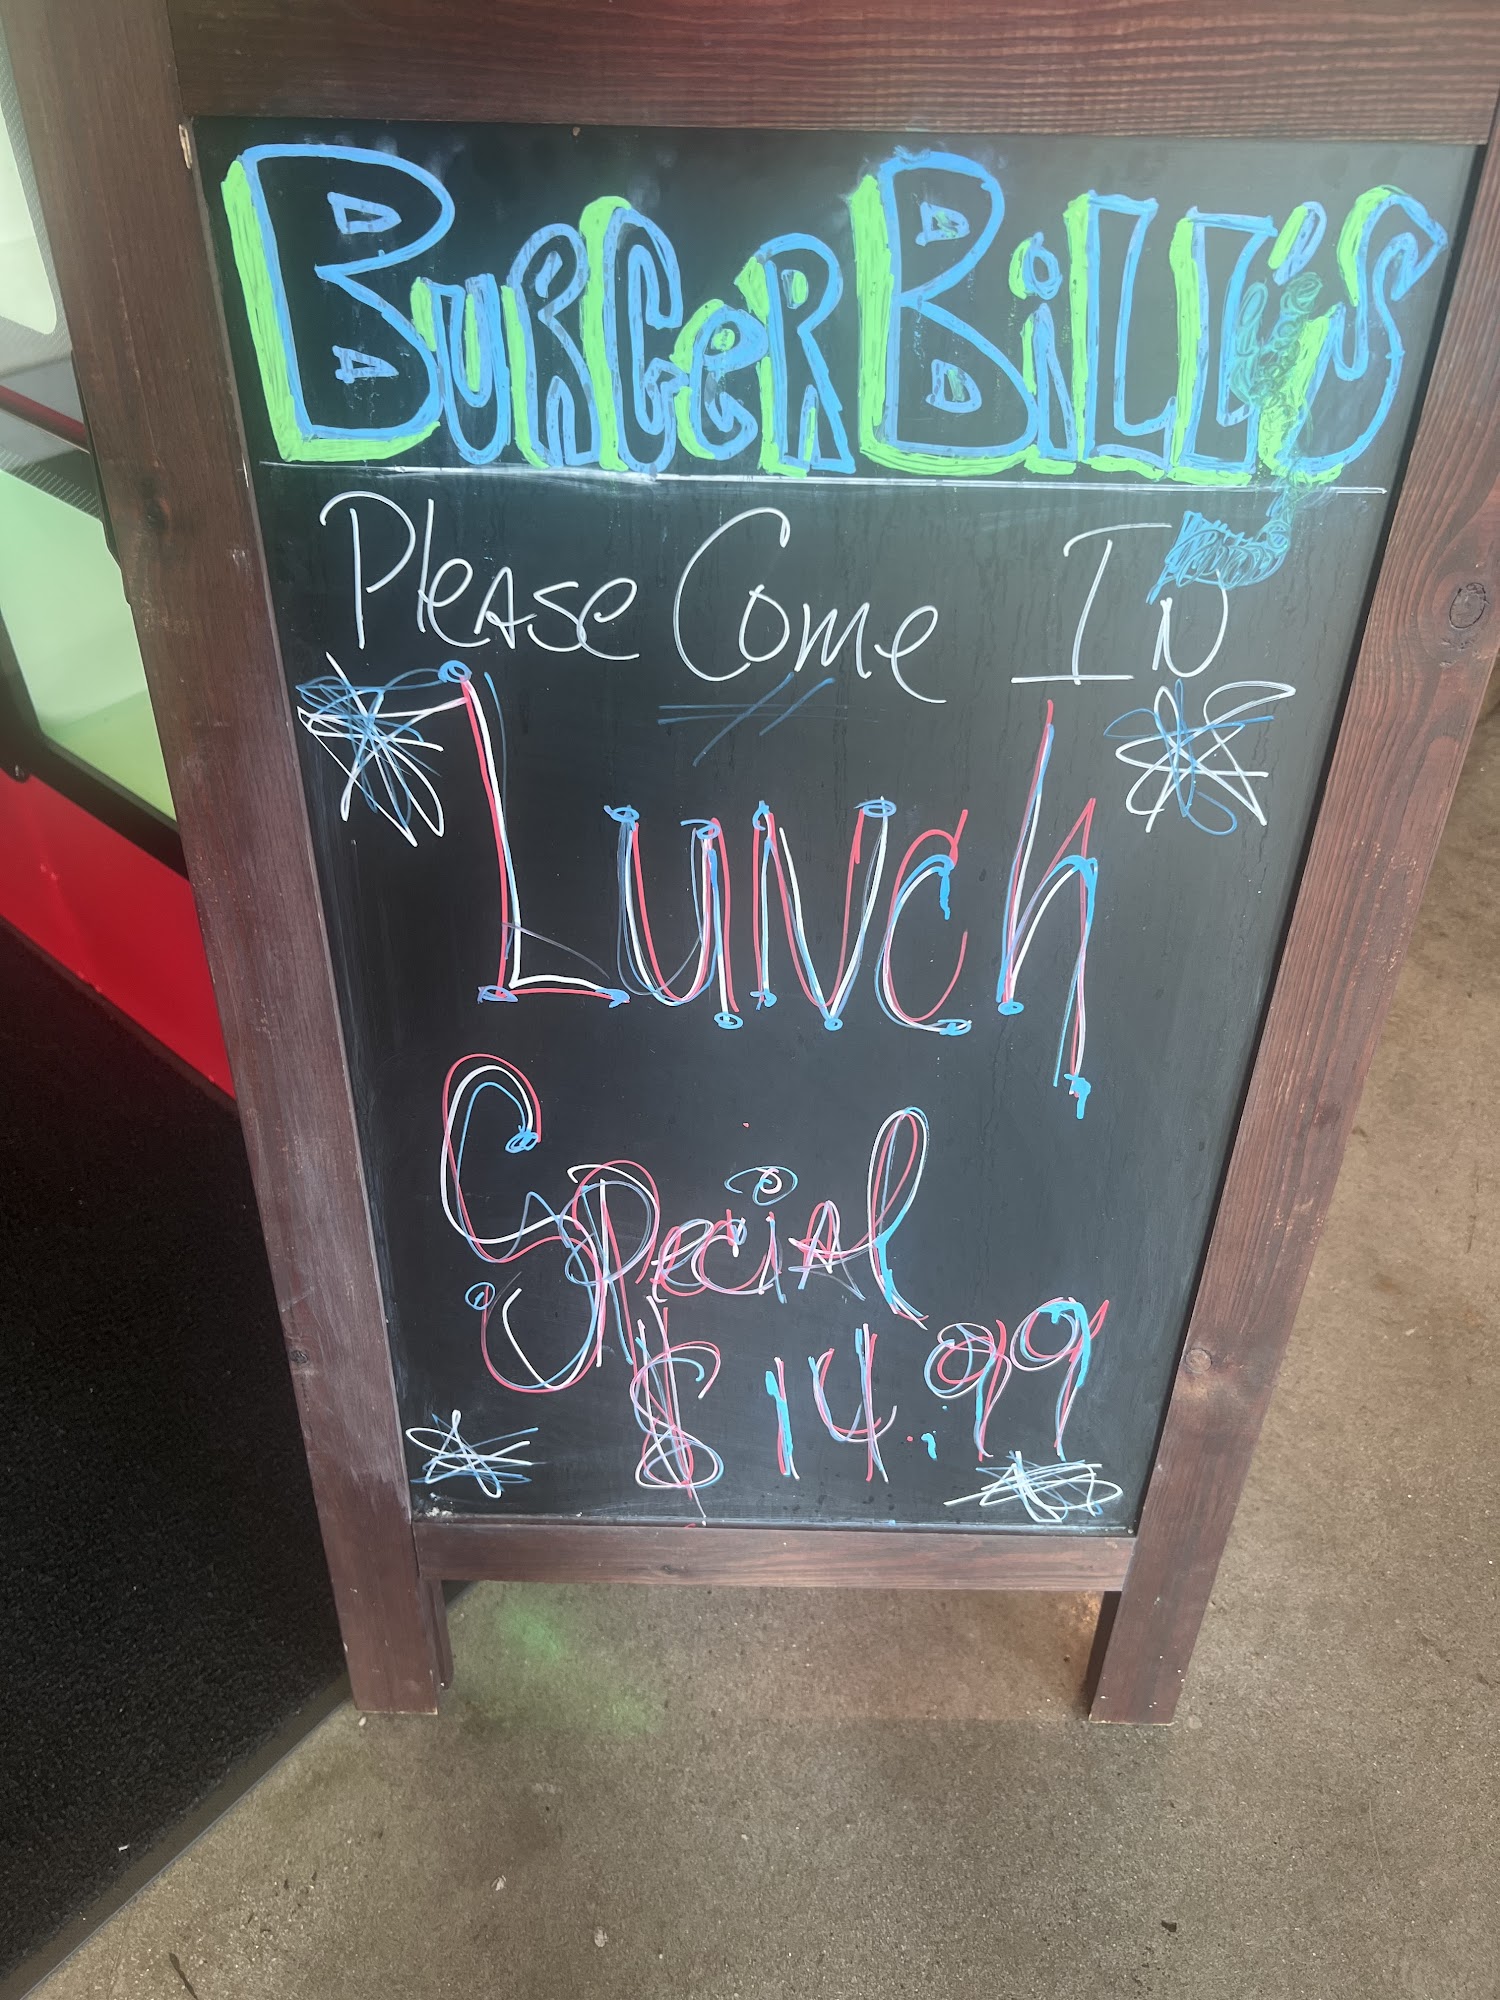 BURGER BILL'S
Please Come In
Lunch
Special
$14.99